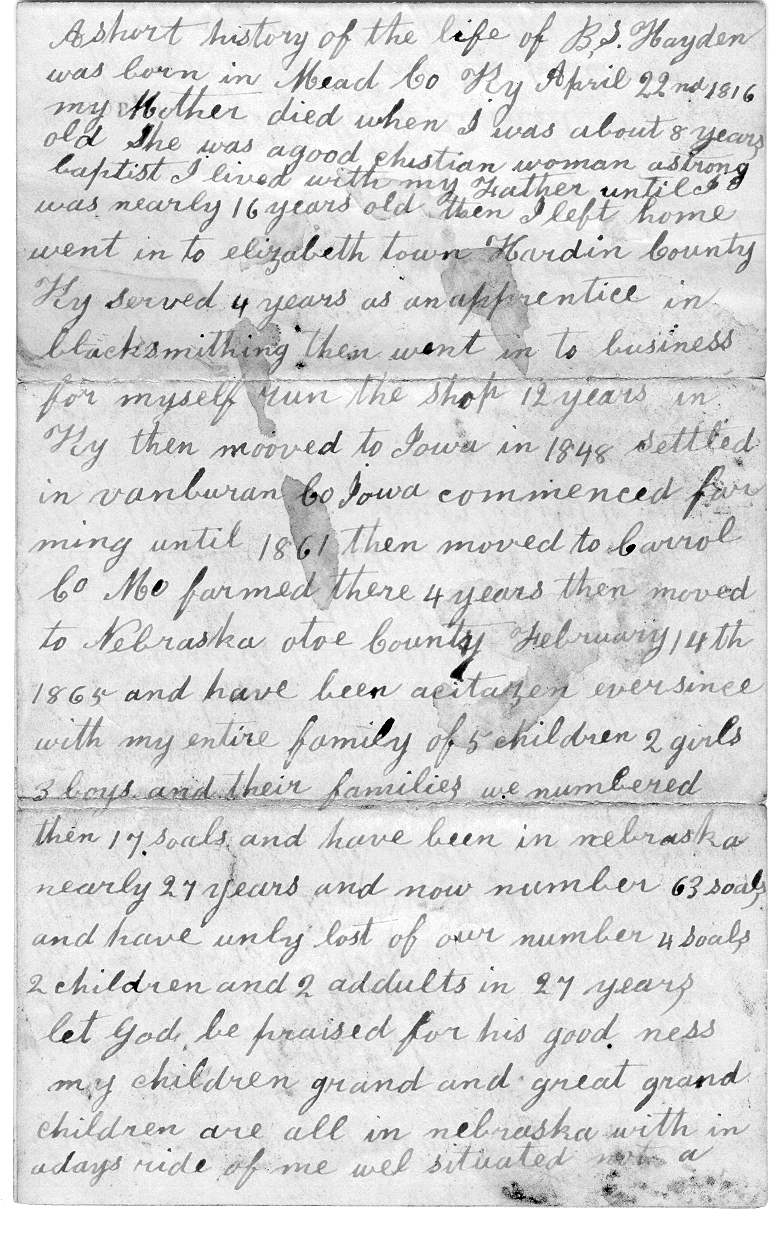 A short history of the life of B, S. Hayden
was born in Mead Co Ky April 22nd 1816
my Mother died when I was about 8 years
old She was a good chistian woman a strong
baptist I lived with my Father until I
was nearly 16 years old then I left home
went in to elizabeth town Hardin County
Ky served 4 years as an apprentice in
blacksmithing then went in to business
for myself run the shop 12 years in
Ky then mooved to Iowa in 1848 settled
in vanburan Co Iowa commenced far
ming until 1861 then moved to Carrol
Co Mo farmed there 4 years then moved
to Nebraska otoe County February 14th
1865 and have been acitazen ever since
with my entire family of 5 children 2 girls
3 boys and their families we numbered
then 17 soals and have been in nebraska
nearly 27 years and now number 63 soals
and have unly lost of our number 4 soals
2 children and 2 addults in 27 years
let God be praised for his good ness
my children grand and great grand
children are all in nebraska with in
adays ride of me wel situated not a